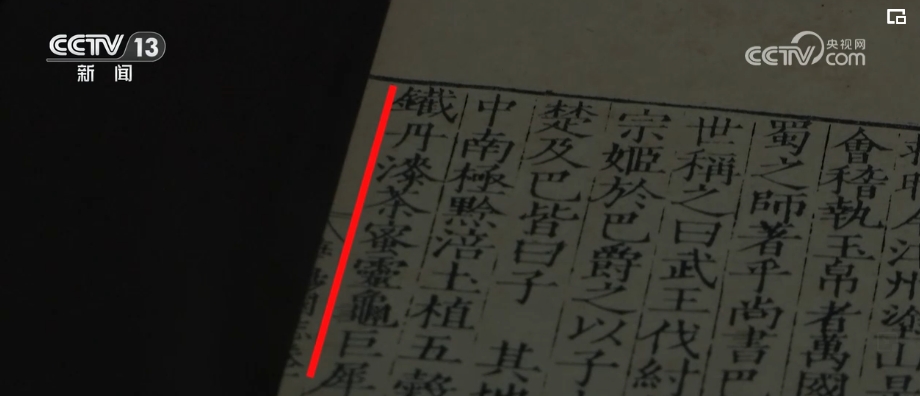 CCTV 13
新闻
央视网
CCTV com
會稽執玉帛者萬國
蜀之師著乎尚書巴
世稱之曰武王伐紂
宗姬於巴爵之以子
楚及巴皆曰子 其地
中南極黔涪土植五穀
鐵丹漆茶蜜靈龜巨犀